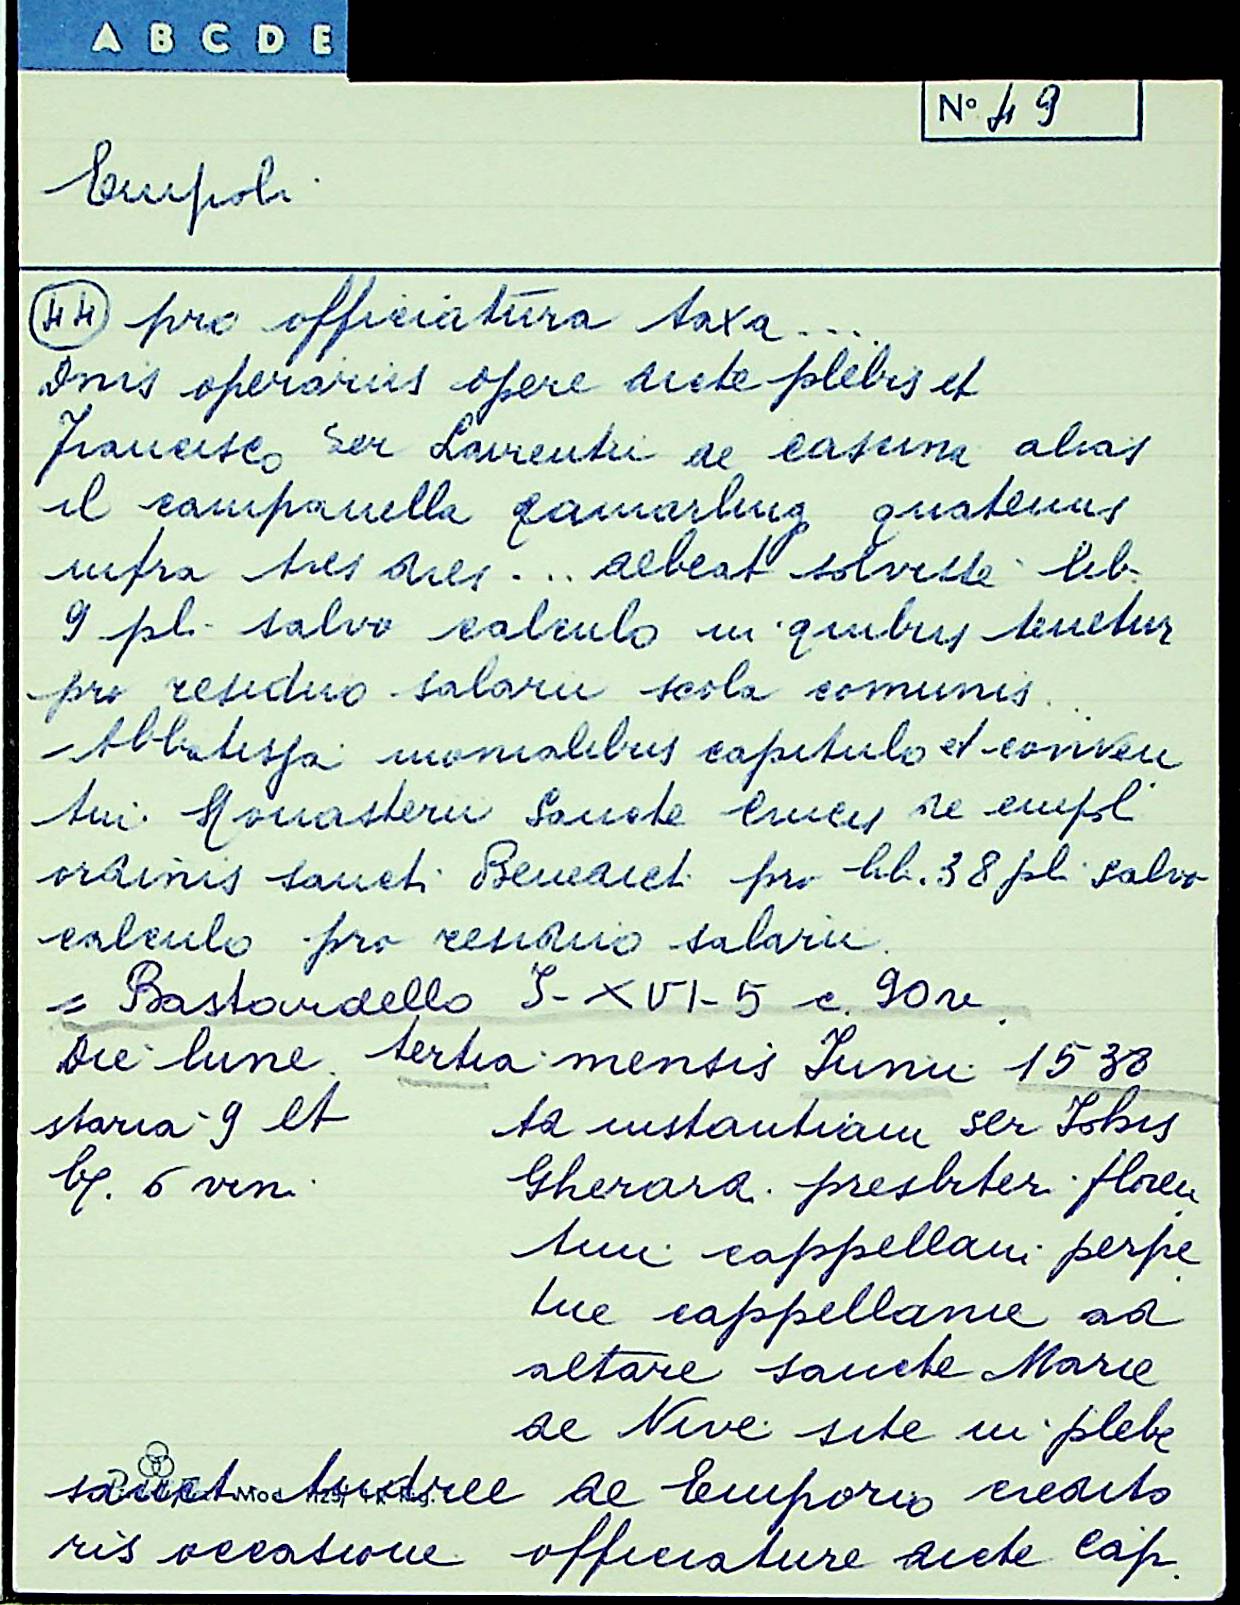 A B C D E
N° 49
Empoli
44 pro officiatura taxa ...
Dnis operarius opere dicte plebis et
Francisco Ser Laurentii de casina alias
il campanella quatenus
infra tres dies ... debeat solvisse lib.
9 pl. salvo calculo in quibus tenetur
pro residuo salarii scola comunis ..
Abbatissa monialibus capitulo et conven
tui Monasterii Sancte Crucis de empl
ordinis sancti Benedicti pro lib. 38 pl. salvo
calculo pro residuo salarii.
= Bastardello I-XVI-5 c. 90
Die lune tertia mensis Iunii 1538
staria 9 et
6 vin.
ad instantiam ser Iohis
Gherardi presbiteri floren
tini cappellani perpe
tue cappellanie ad
altare sancte Marie
de Nive site in plebe
sancti Andree de Emporio credito
ris occasione officiature dicte cap.